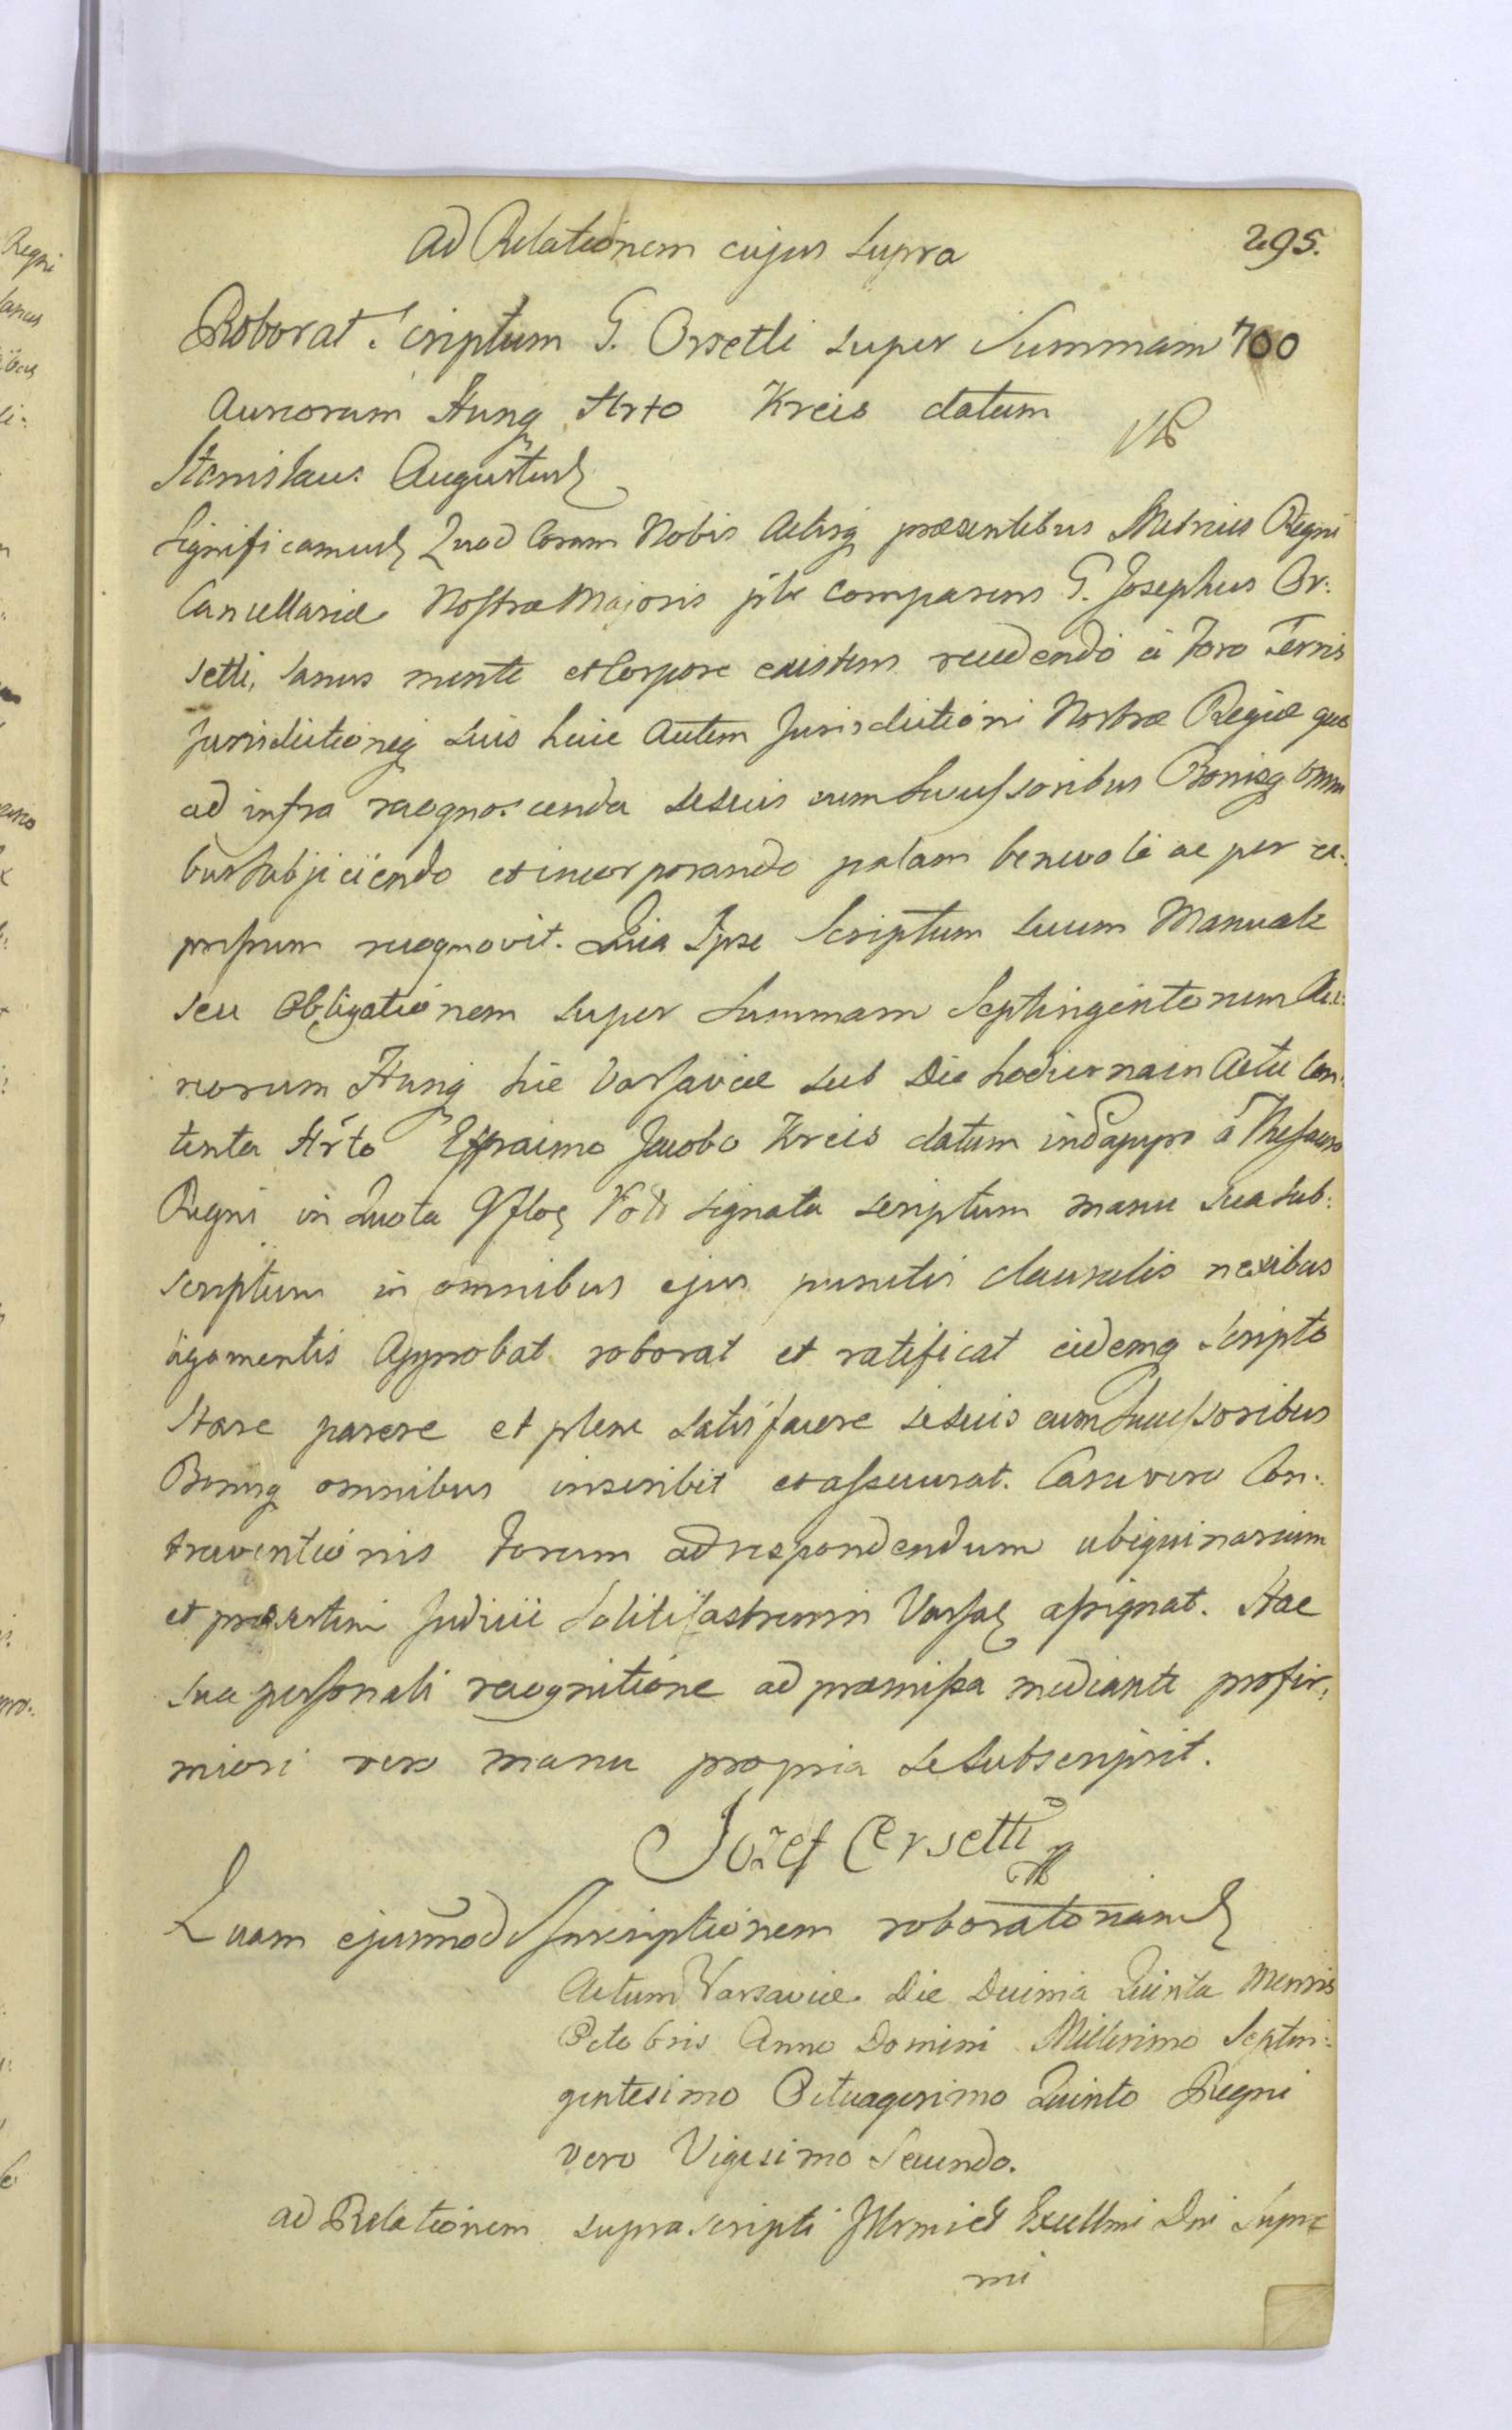 ad Relationem cujus supra 295.
Roborat Scriptum G. Orsetti super Summam 700
Aureorum Hung Hrto Kreis datum
Stanislaus Augustus
Significamus Quod Coram Nobis Actisq praesentibus Metrices Regni
Cancellariae Nostrae Majoris pltr Comparens G. Josephus Or:
setti, sanus mente et Corpore existens recedendo a Foro Terris
Jurisdictioneq suis huic Autem Jurisdictioni Nostrae Regiae quo
ad infra recognoscenda se suis cum Successoribus Bonisq omni
bus subjiciendo et incorporando palam benevole ac per ex:
pressum recognovit. Quia Ipse Scriptum suum Manuale
seu Obligationem super Summam Septingentorum Au:
reorum Hung hic Varsaviae sub Die hodierna in Actu Con:
tenta Hrto Effraimo Jacobo Kreis datum in Papyro a Thesauro
Regni in Quota signata scriptum manu sua sub:
scriptum in omnibus ejus punctis clausulis nexibus
ligamentis Approbat roborat et ratificat eidemq scripto
Stare parere et plene satisfacere se suis cum Successoribus
Bonisq omnibus inscribit et assecurat. Casu vero Con:
traventionis Forum ad respondendum ubiquinarium
et praesertim Judicii Soliti Castrensis Varsa assignat. Hac
sua personali recognitione ad praemissa mediante pro fir:
miori vero manu propria se subscripsit.
Jozef Orsetti
Quam ejusmodi Inscriptionem roboratoriam
Actum Varsaviae Die Decima Quinta Mensis
Octobris Anno Domini Millesimo Septin:
gentesimo Octuagesimo Quinto Regni
vero Vigesimo Secundo.
ad Relationem suprascripti Illrmi et Excellmi Dni Supre
mi